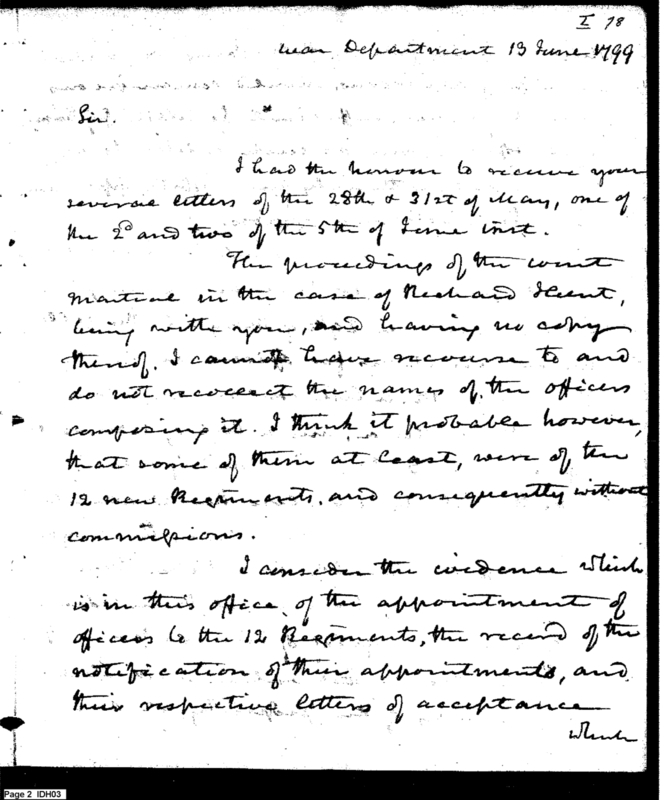 I 78
War Department 13 June 1799
Sir.
I had the honour to receive your
several letters of the 28th & 31st of May, one of
the 2d and two of the 5th of June inst.
The proceedings of the court
martial in the case of Richard Hunt,
being with you, and having no copy
thereof, I cannot have recourse to and
do not recollect the names of the officers
composing it. I think it probable however,
that some of them at least, were of the
12 new Regiments, and consequently without
commissions.
I consider the evidence which
is in this office, of the appointment of
officers to the 12 Regiments, the record of the
notification of their appointments, and
their respective letters of acceptance
which
Page 2 IDH03